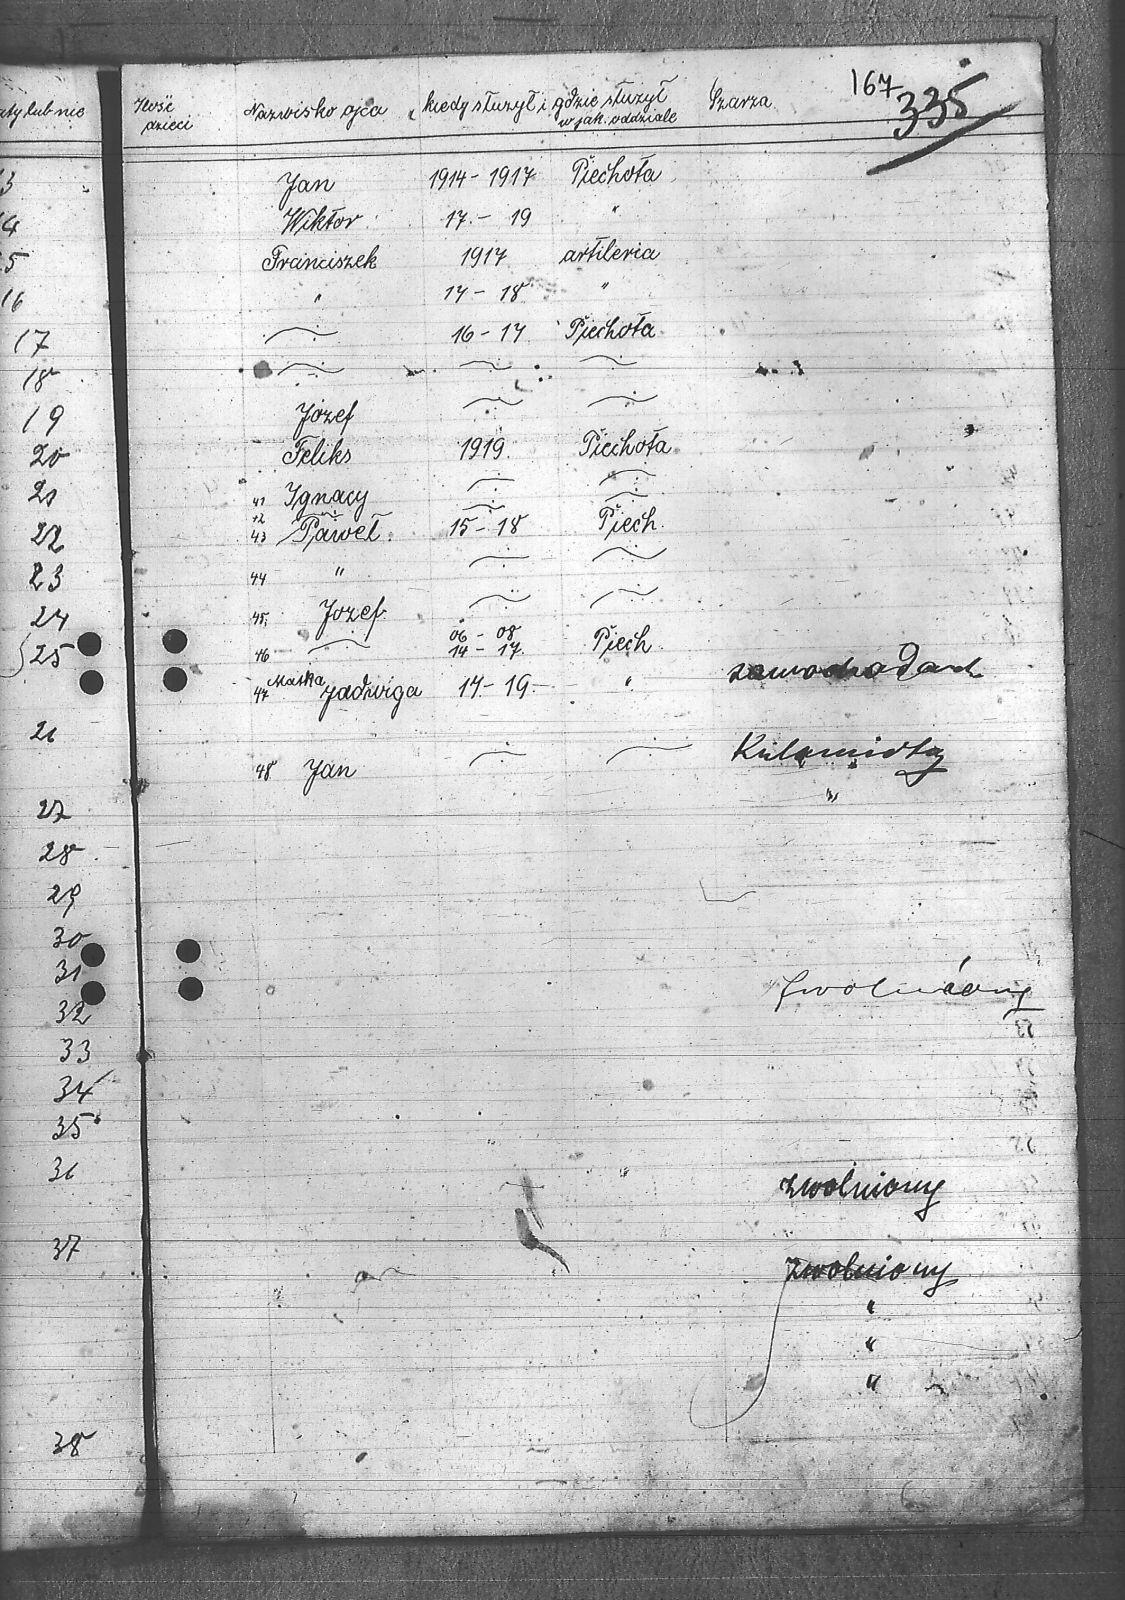 167
335
lub nie Ilość dzieci Nazwisko ojca kiedy służył i gdzie służył w jak. oddziale Szarża
Jan 1914 - 1917 Piechota
Wiktor 17. - 19 "
Franciszek 1917 artileria
16 " 17 - 18 "
17 16 - 17 Piechota
18
19 Józef
20 Feliks 1919. Piechota
21 41 Ignacy
42
22 43 Paweł 15 - 18 Piech.
23 44 "
24 45. Józef
06 - 08
25 46 14 - 17 Piech.
47 Matka Jadwiga 14 - 19 - "
26
48 Jan
"
27
28
29
30
31
32 zwolniony
33
34
35
36 zwolniony
37
zwolniony
"
"
"
38